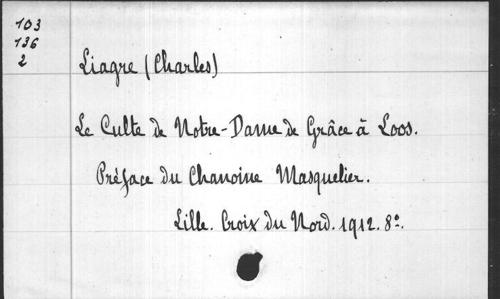 103
136
2
Liagre (Charles)
Le Culte de Notre-Dame de Grâce à Loos.
Préface du Chanoine Masquelier.
Lille. Croix du Nord. 1912. 8º.